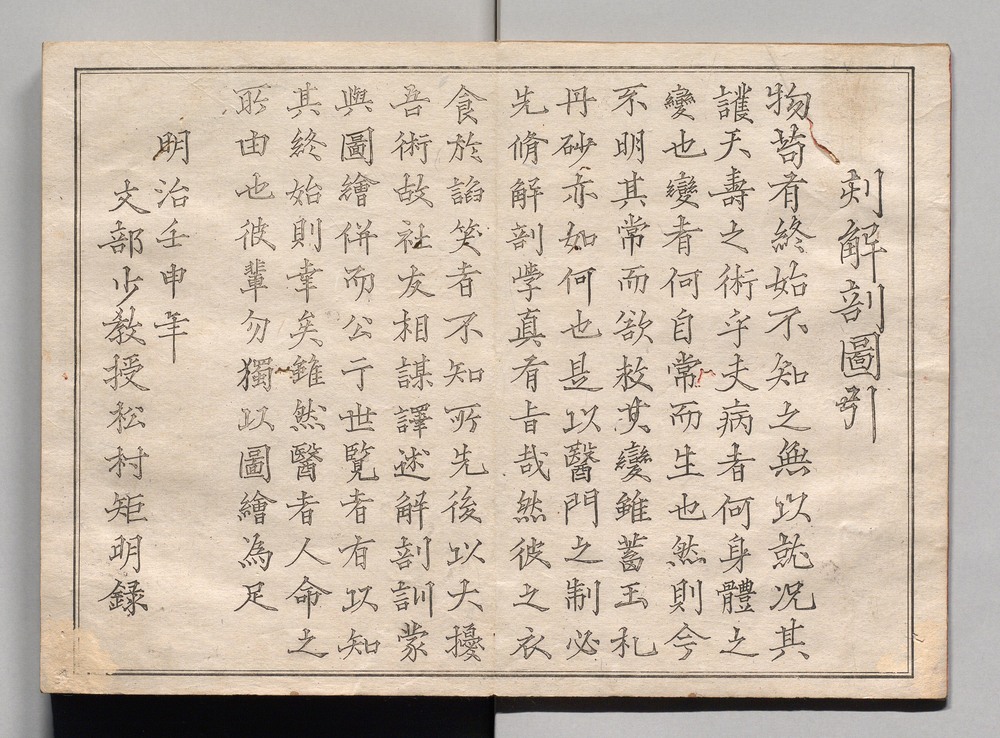 刻解剖圖引
物苟有終始不知之無以就况其
護天壽之術乎夫病者何身體之
變也變者何自常而生也然則今
不明其常而欲救其變雖蓄玉札
丹砂亦如何也是以醫門之制必
先脩解剖学真有旨哉然彼之衣
食於諂笑者不知所先後以大擾
吾術故社友相謀譯述解剖訓蒙
與圖繪併而公于世覽者有以知
其終始則幸矣雖然醫者人命之
所由也彼輩勿獨以圖繪為足
明治壬申年
文部少教授松村矩明録